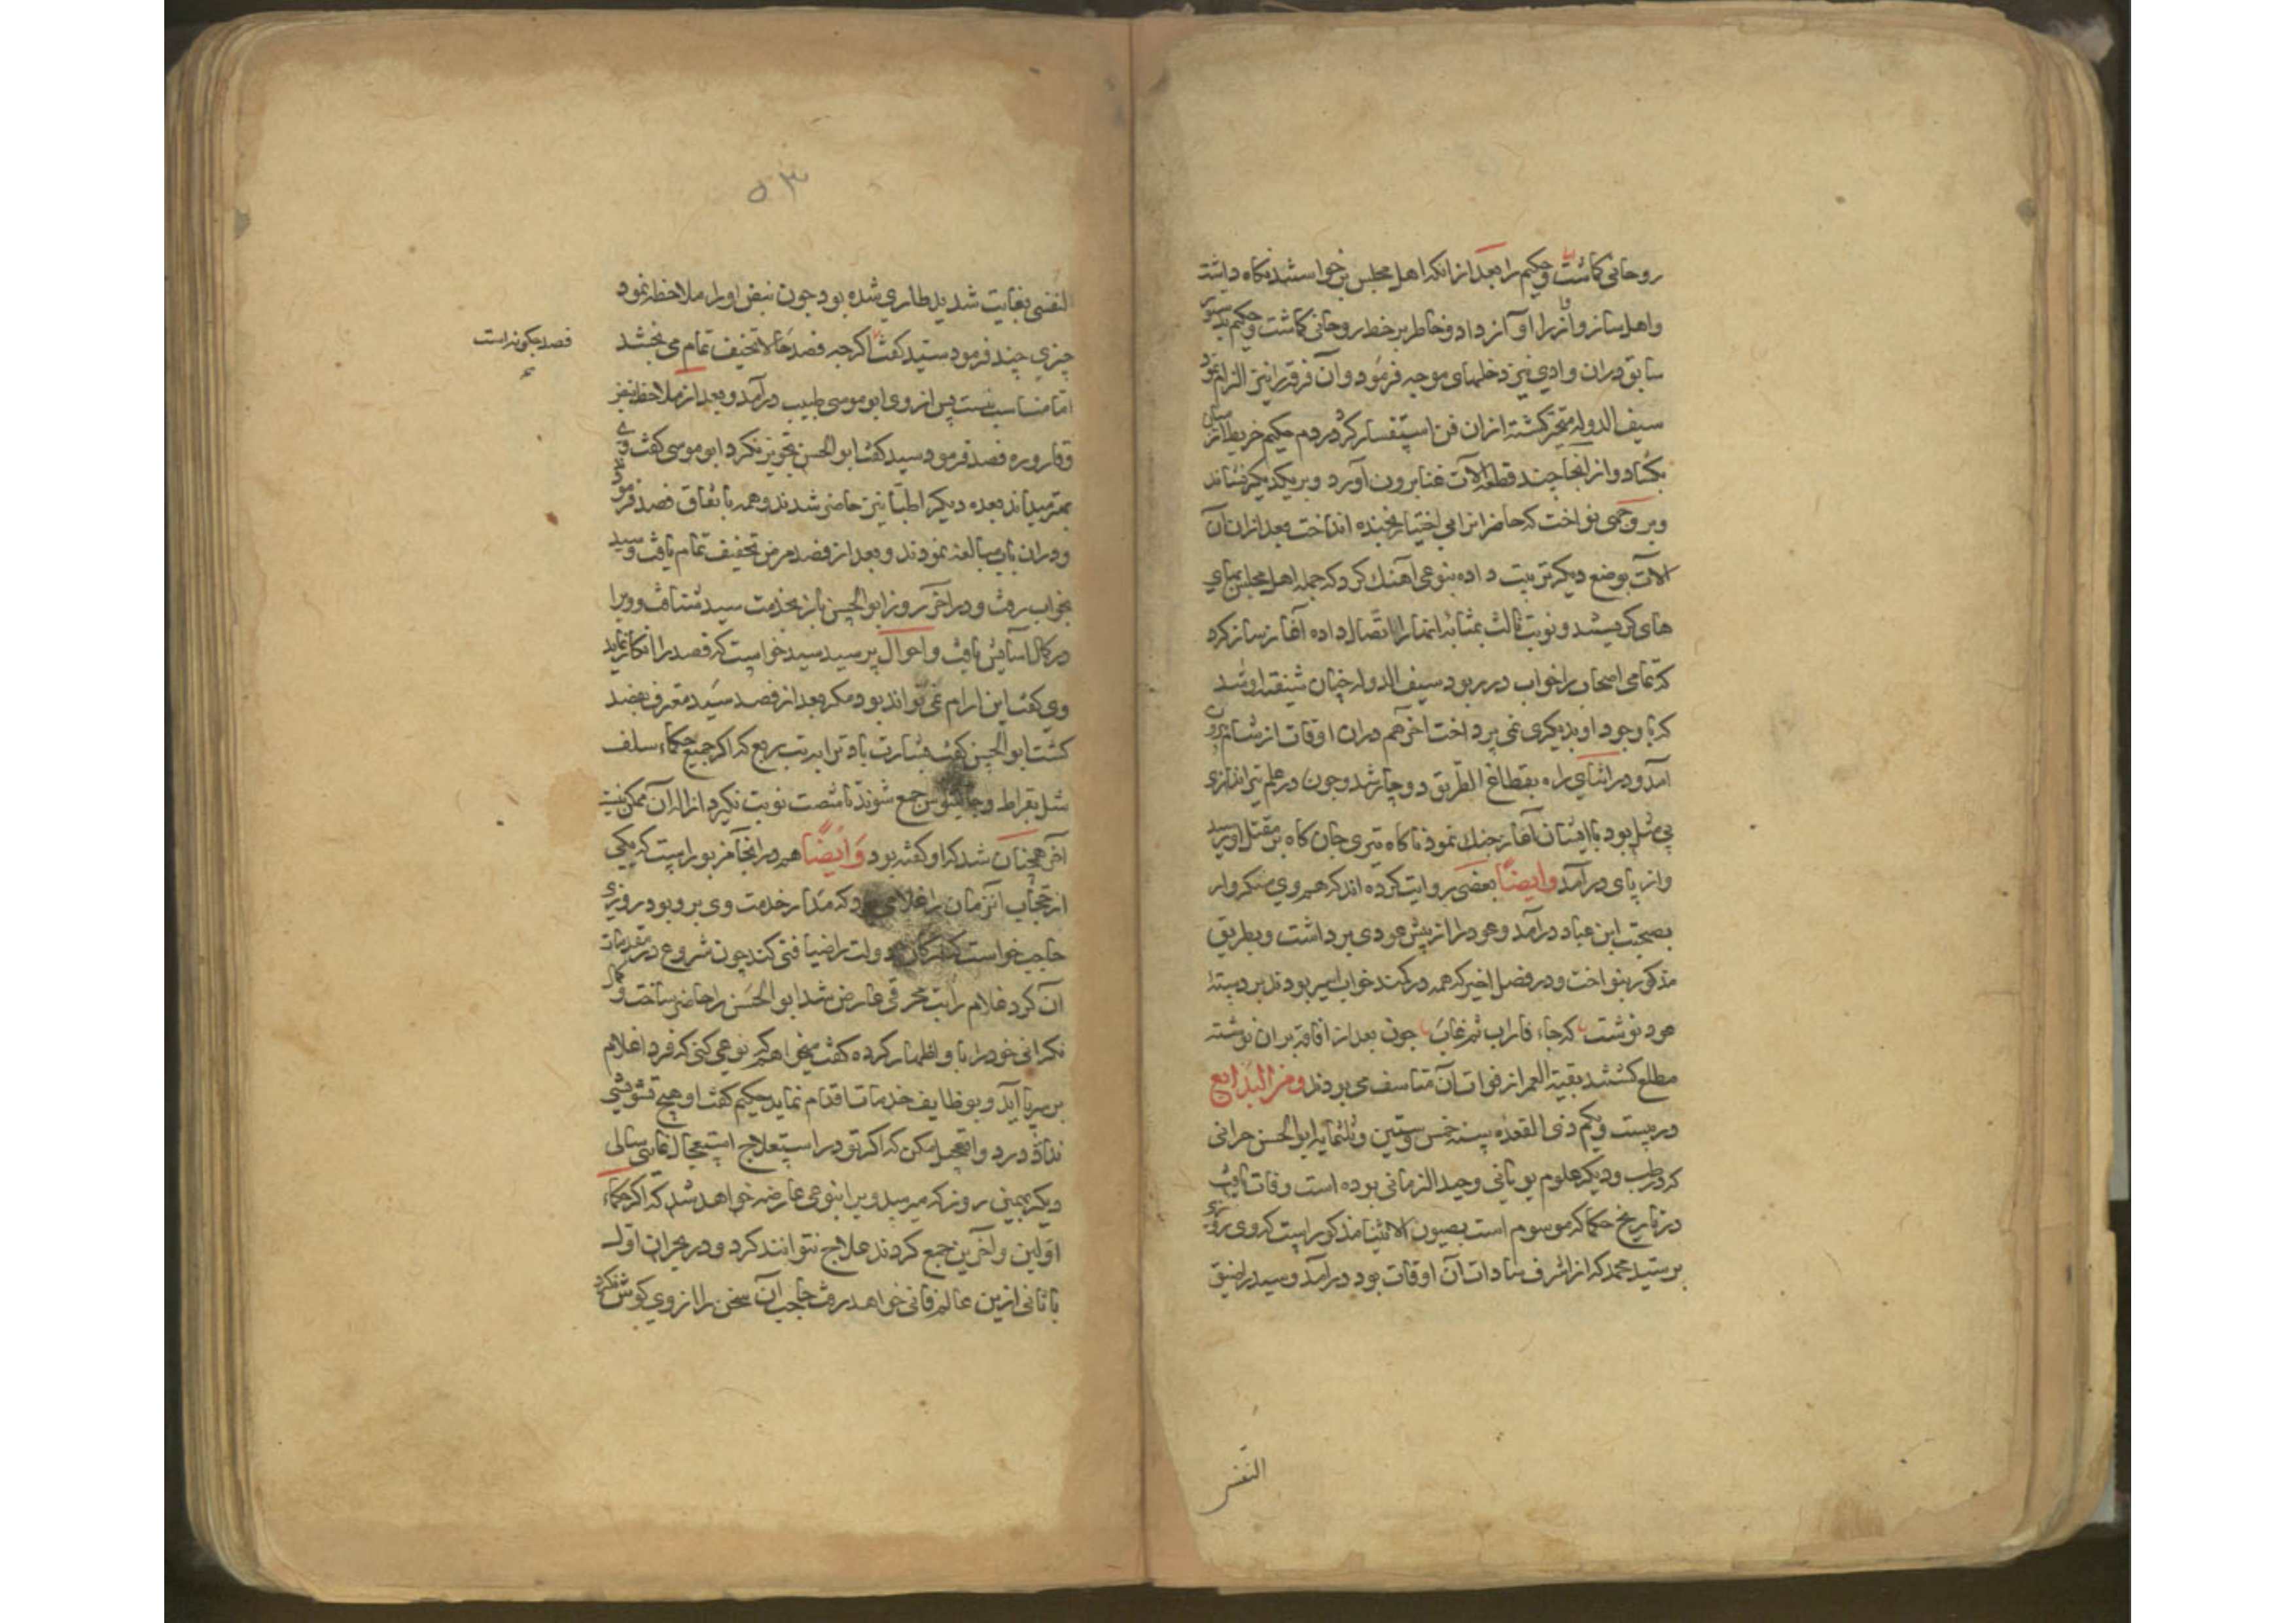 روحانی کماشت و حکیم را بعد از انکه اهل مجلس برخواستند نکاه داشت
واهل ساز و آواز را آواز داد و خاطر بر خط روحانی کماشت و حکیم بدستور
سابق دران وادی نیز دخلهای موجه فرمود و آن فرقه را نیز الزام نمود
سیف الدوله متحیر کشته ازان فن استفسار کرد در دم حکیم خریطه از میان
بکشاد و از انجا چند قطعه آلات غنا برون آورد و بر یکدیکر نشاند
و بر وجهی نواخت که حاضرانرا بی اختیار بخنده انداخت بعد ازان آن
آلات بوضع دیکر ترتیب داده بنوعی آهنك کرد که جمله اهل مجلس بهای
های کریستند و نوبت ثالث بمثابه انها را اتصال داده آغاز ساز کرد
که تمامی اصحاب را خواب در ربود سیف الدوله چنان شیفته او شد
که با وجود او بدیکری نمی پرداخت آخر هم دران اوقات از شام برون
آمد و در اثنای راه بقطاع الطریق دوچار شد و چون در علم تیراندازی
بی مثل بود با ایشان آغاز جنك نمود ناکاه تیری جان کاه بر مقتل او رسید
و از پای درآمد وایضًا بعضی روایت کرده اند که هم وی منکروار
بصحبت ابن عباد درآمد و عود را از پیش عودی برداشت و بطریق
مذکور بنواخت و در فصل اخیر که همه در کمند خواب اسیر بودند بر دسته
عود نوشت که جاء فاراب ثم غاب چون بعد از افاقه بران نوشته
مطلع کشتند بقیة العمر از فوات آن متاسف می بودند ومن البدایع
در بیست و یکم ذی القعده سنه خمس و ستین و ثلثمایه ابو الحسن حرانی
که در طب و دیکر علوم یونانی وحید الزمانی بوده است وفات یافت
در تاریخ حکما که موسوم است بعیون الانبیا مذکور است که وی روزی
بر سید محمد که از اشرف سادات آن اوقات بود درآمد و سید را ضیق
النفس
۵۳
النفسی بغایت شدید طاری شده بود چون نبض او را ملاحظه نمود
چیزی چند فرمود سید کفت اکرچه فصد حالا تخفیف تمام می بخشد
فصد چکونه است
اما مناسب نیست پس از وی ابو موسی طبیب درآمد و بعد از ملاحظه نبض
و قاروره فصد فرمود سید کفت ابو الحسن تجویز نکرد ابو موسی کفت وی
بهتر میداند بعده دیکر اطبا نیز حاضر شدند و همه باتفاق فصد فرمود
و دران باب مبالغه نمودند و بعد از فصد مرض تخفیف تمام یافت و سید
بخواب رفت و در آخر روز ابو الحسن باز بخدمت سید شتافت و ویرا
در کمال آسایش یافت و احوال پرسید سید خواست که فصد را انکار نماید
وی کفت این ارام نمی تواند بود مکر بعد از فصد سید معترف بفصد
کشت ابو الحسن کفت بشارت باد ترا بتب ربع که اکر جمیع حکماء سلف
مثل بقراط و جالینوس جمع شوند تا شصت نوبت نکیرد ازاله آن ممکن نیست
آخر همچنان شد که او کفته بود وَایضًا هم در انجا مزبور است که یکی
از حجاب آنزمان را غلامی بود که مدار خدمت وی برو بود روزی
حاجب خواست که ارکان دولت را ضیافتی کند چون شروع در مقدمات
آن کرد غلام را تب محرقی عارض شد ابو الحسن را حاضر ساخت و کمال
نکرانی خود را باو اظهار کرده کفت میخواهم که نوعی کنی که فردا غلام
بر سر پا آید و بوظایف خدمات اقدام نماید حکیم کفت او هیچ تشویشی
ندارد و تعجیل مکن که اکر تو در استعلاج استعجال نمایی سالی
دیکر بهمین روز که میرسد ویرا بنوعی عارضه خواهد شد که اکر حکماء
اولین و آخرین جمع کردند علاج نتوانند کرد و در بحران اول
یا ثانی ازین عالم فانی خواهد رفت حاجب آن سخن را از وی کوش نکرد